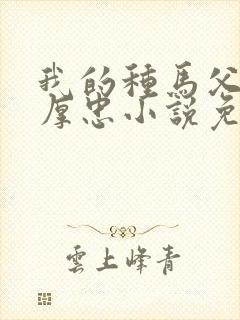 我的種馬父
厚忠小說免
雲上峰青